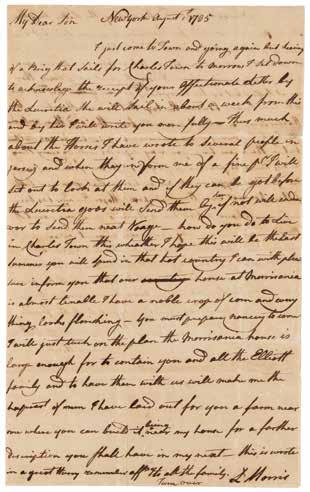 My Dear Sir New York August 1 1785
I just come to Town and going again but hearing
of a Brig that Sails for Charles Town tomorrow I set down
to acknowledge the receipt of your Affectionate Letter by
the Lucretia She will Sail in about a week from this
and by her I will write you more fully — Thus much
about the Horses I have wrote to several people in
Jersey and when they inform me of a fine pr. I will
set out to look at them and if they can be got before
the Lucretia goes will send them by if not will endea
vor to Send them next Voage — how do you do to live
in Charles Town this wheather I hope this will be the last
summer you will spend in that hot country I can with plea
sure inform you that our house at Morrisania
is almost livable I have a noble crop of corn and every
thing looks flourishing — you must prepare nancy to come
I will just touch on the plan the Morrisania house is
large enough for to contain you and all the Elliott
family and to have them with us will make me the
happiest of men I have laid out for you a farm near
me where you can build it being near my house for a farther
discription you shall have in my next — this is wrote
in a great hurry remember affy to all the family.
Turn over L Morris